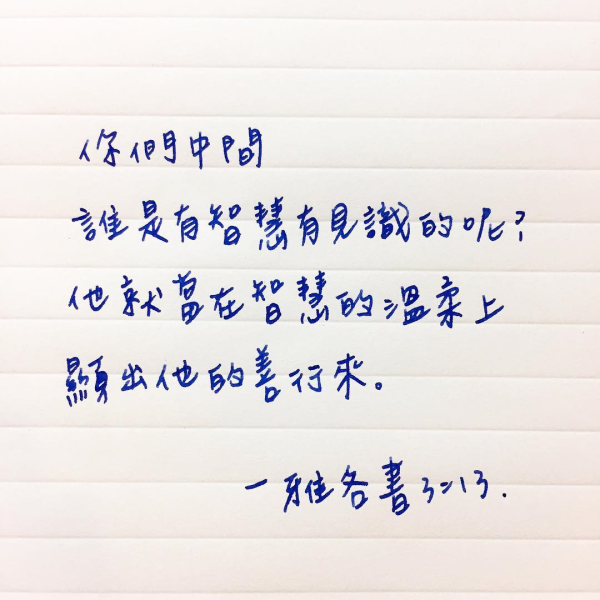 你們中間
誰是有智慧有見識的呢?
他就當在智慧的溫柔上
顯出他的善行來。
—雅各書3:13.